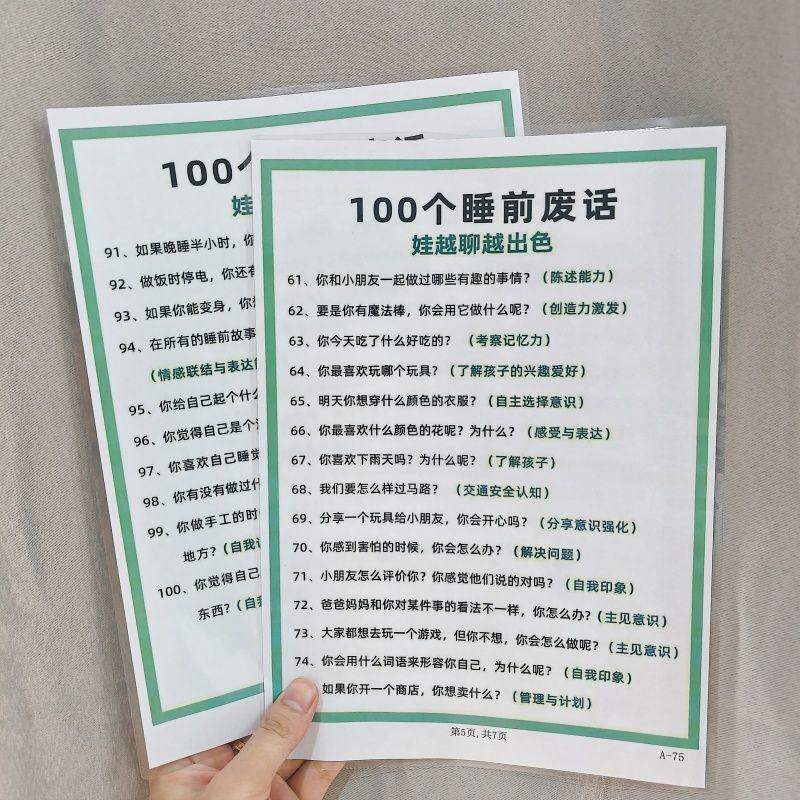 100个
娃
91、如果晚睡半小时，你
92、做饭时停电，你还有
93、如果你能变身，你
94、在所有的睡前故事
（情感联结与表达
95、你给自己起个什么
96、你觉得自己是个
97、你喜欢自己睡觉
98、你有没有做过什
99、你做手工的时
地方？（自我
100、你觉得自己
东西？（自我
100个睡前废话
娃越聊越出色
61、你和小朋友一起做过哪些有趣的事情？（陈述能力）
62、要是你有魔法棒，你会用它做什么呢？（创造力激发）
63、你今天吃了什么好吃的？（考察记忆力）
64、你最喜欢玩哪个玩具？（了解孩子的兴趣爱好）
65、明天你想穿什么颜色的衣服？（自主选择意识）
66、你最喜欢什么颜色的花呢？为什么？（感受与表达）
67、你喜欢下雨天吗？为什么呢？（了解孩子）
68、我们要怎么样过马路？（交通安全认知）
69、分享一个玩具给小朋友，你会开心吗？（分享意识强化）
70、你感到害怕的时候，你会怎么办？（解决问题）
71、小朋友怎么评价你？你感觉他们说的对吗？（自我印象）
72、爸爸妈妈和你对某件事的看法不一样，你怎么办？（主见意识）
73、大家都想去玩一个游戏，但你不想，你会怎么做呢？（主见意识）
74、你会用什么词语来形容你自己，为什么呢？（自我印象）
如果你开一个商店，你想卖什么？（管理与计划）
第5页，共7页
A-75